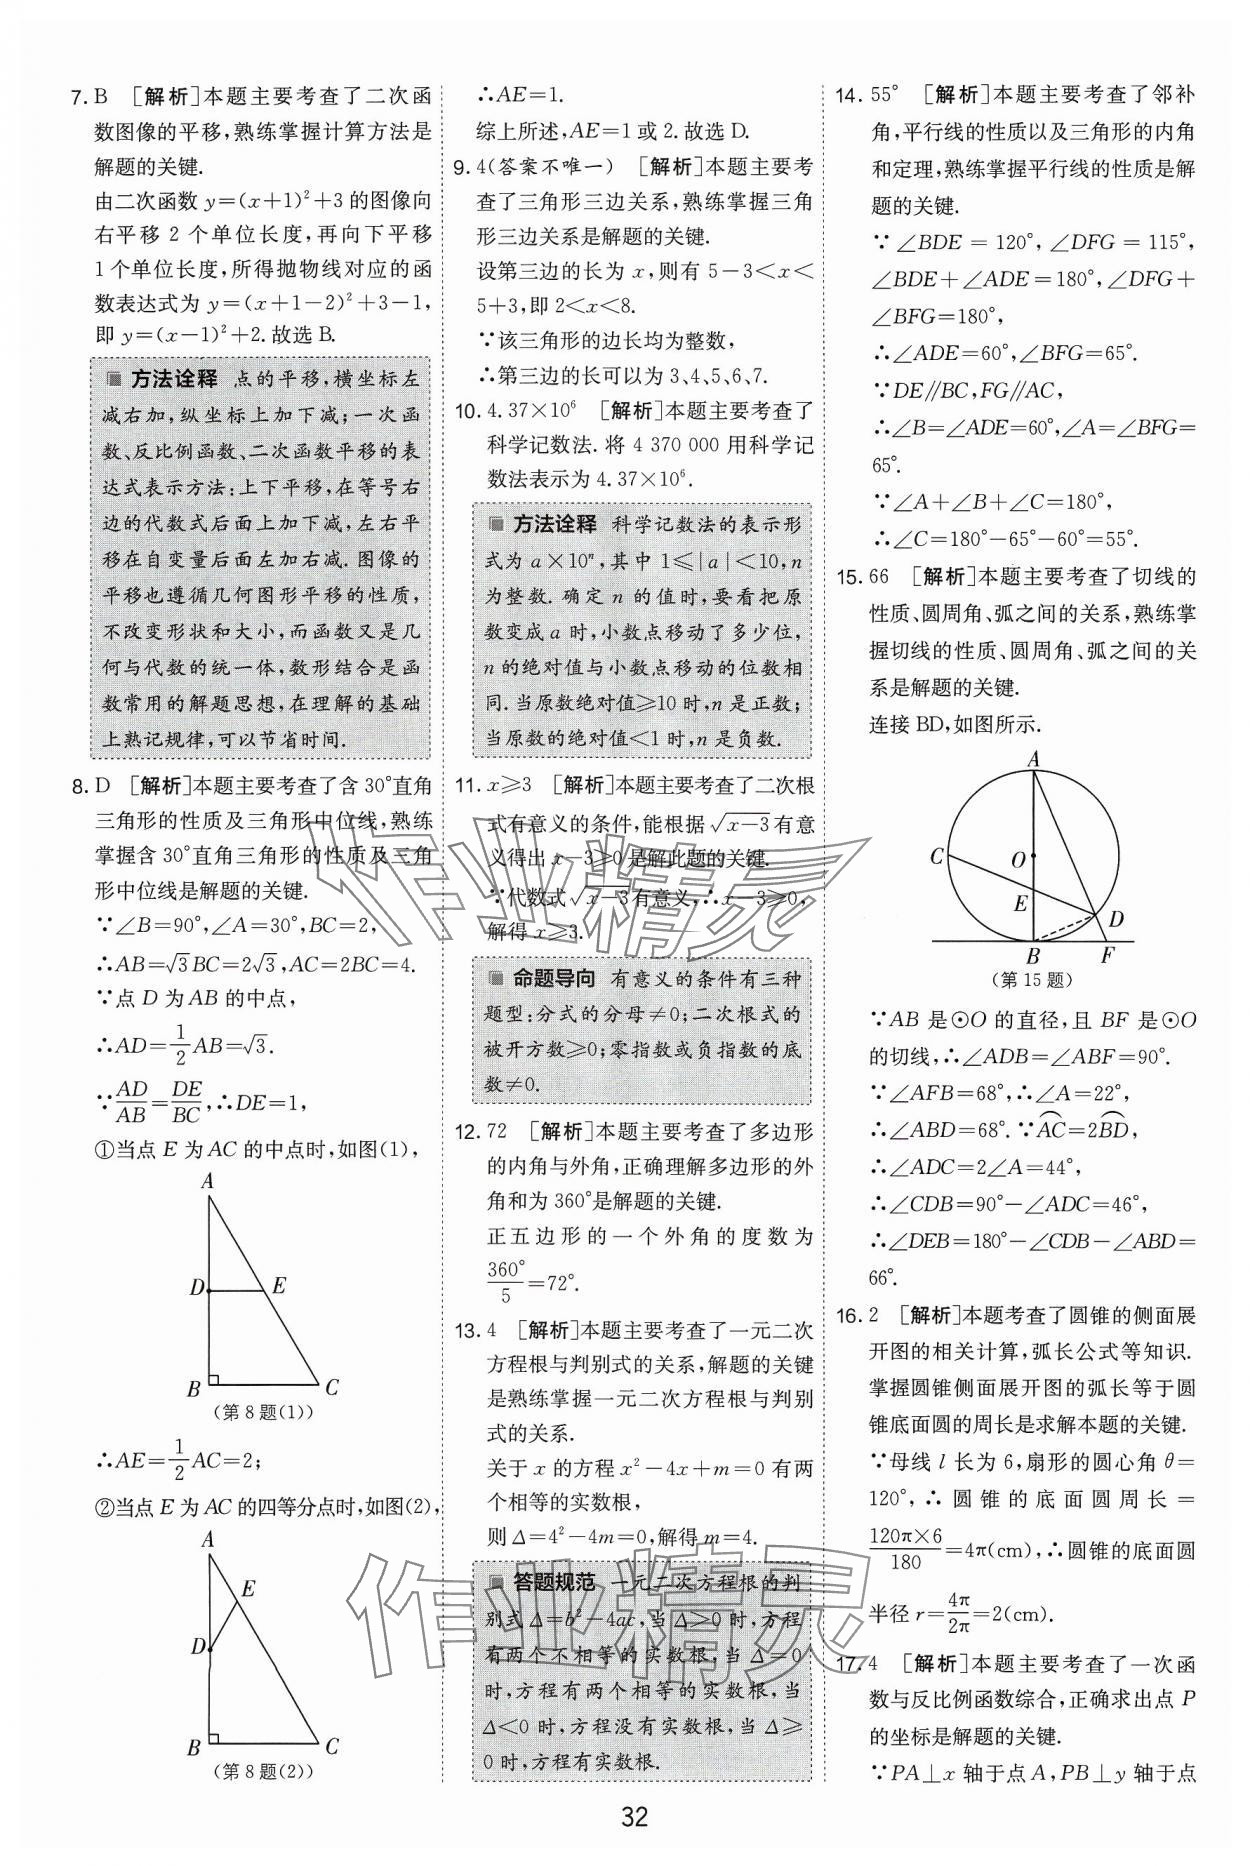 7. B [解析]本题主要考查了二次函
数图像的平移,熟练掌握计算方法是
解题的关键.
由二次函数 y=(x+1)²+3 的图像向
右平移 2 个单位长度,再向下平移
1个单位长度,所得抛物线对应的函
数表达式为 y=(x+1-2)²+3-1,
即 y=(x-1)²+2.故选 B.
方法诠释 点的平移,横坐标左
减右加,纵坐标上加下减;一次函
数、反比例函数、二次函数平移的表
达式表示方法:上下平移,在等号右
边的代数式后面上加下减,左右平
移在自变量后面左加右减.图像的
平移也遵循几何图形平移的性质,
不改变形状和大小,而函数又是几
何与代数的统一体,数形结合是函
数常用的解题思想,在理解的基础
上熟记规律,可以节省时间.
8. D [解析]本题主要考查了含30°直角
三角形的性质及三角形中位线,熟练
掌握含30°直角三角形的性质及三角
形中位线是解题的关键.
∵∠B=90°,∠A=30°,BC=2,
∴AB=√3BC=2√3,AC=2BC=4.
∵点 D 为 AB 的中点,
∴AD=1/2AB=√3.
∵AD/AB=DE/BC,∴DE=1,
①当点 E 为 AC 的中点时,如图(1),
A
D
E
B
C
(第 8 题(1))
∴AE=1/2AC=2;
②当点 E 为 AC 的四等分点时,如图(2),
A
E
D
B
C
(第 8 题(2))
∴AE=1.
综上所述,AE=1 或 2.故选 D.
9. 4(答案不唯一) [解析]本题主要考
查了三角形三边关系,熟练掌握三角
形三边关系是解题的关键.
设第三边的长为 x,则有 5-3<x<
5+3,即 2<x<8.
∵该三角形的边长均为整数,
∴第三边的长可以为 3、4、5、6、7.
10. 4.37×10⁶ [解析]本题主要考查了
科学记数法.将 4 370 000 用科学记
数法表示为 4.37×10⁶.
方法诠释 科学记数法的表示形
式为 a×10ⁿ,其中 1≤|a|<10,n
为整数.确定 n 的值时,要看把原
数变成 a 时,小数点移动了多少位,
n 的绝对值与小数点移动的位数相
同.当原数绝对值≥10 时,n 是正数;
当原数的绝对值<1 时,n 是负数.
11. x≥3 [解析]本题主要考查了二次根
式有意义的条件,能根据√(x-3)有意
义得出 x-3≥0 是解此题的关键.
∵代数式√(x-3)有意义,∴x-3≥0,
解得 x≥3.
命题导向 有意义的条件有三种
题型:分式的分母≠0;二次根式的
被开方数≥0;零指数或负指数的底
数≠0.
12. 72 [解析]本题主要考查了多边形
的内角与外角,正确理解多边形的外
角和为 360°是解题的关键.
正五边形的一个外角的度数为
360°/5=72°.
13. 4 [解析]本题主要考查了一元二次
方程根与判别式的关系,解题的关键
是熟练掌握一元二次方程根与判别
式的关系.
关于 x 的方程 x²-4x+m=0 有两
个相等的实数根,
则 Δ=4²-4m=0,解得 m=4.
答题规范 一元二次方程根的判
别式 Δ=b²-4ac,当 Δ>0 时,方程
有两个不相等的实数根,当 Δ=0
时,方程有两个相等的实数根,当
Δ<0 时,方程没有实数根,当 Δ≥
0 时,方程有实数根.
14. 55° [解析]本题主要考查了邻补
角,平行线的性质以及三角形的内角
和定理,熟练掌握平行线的性质是解
题的关键.
∵∠BDE=120°,∠DFG=115°,
∠BDE+∠ADE=180°,∠DFG+
∠BFG=180°,
∴∠ADE=60°,∠BFG=65°.
∵DE∥BC,FG∥AC,
∴∠B=∠ADE=60°,∠A=∠BFG=
65°.
∵∠A+∠B+∠C=180°,
∴∠C=180°-65°-60°=55°.
15. 66 [解析]本题主要考查了切线的
性质、圆周角、弧之间的关系,熟练掌
握切线的性质、圆周角、弧之间的关
系是解题的关键.
连接 BD,如图所示.
A
C
O
E
D
B
F
(第 15 题)
∵AB 是⊙O 的直径,且 BF 是⊙O
的切线,∴∠ADB=∠ABF=90°.
∵∠AFB=68°,∴∠A=22°,
∴∠ABD=68°.∵⌒AC=2⌒BD,
∴∠ADC=2∠A=44°,
∴∠CDB=90°-∠ADC=46°,
∴∠DEB=180°-∠CDB-∠ABD=
66°.
16. 2 [解析]本题考查了圆锥的侧面展
开图的相关计算,弧长公式等知识.
掌握圆锥侧面展开图的弧长等于圆
锥底面圆的周长是求解本题的关键.
∵母线 l 长为 6,扇形的圆心角 θ=
120°,∴圆锥的底面圆周长=
120π×6/180=4π(cm),∴圆锥的底面圆
半径 r=4π/2π=2(cm).
17. 4 [解析]本题主要考查了一次函
数与反比例函数综合,正确求出点 P
的坐标是解题的关键.
∵PA⊥x 轴于点 A,PB⊥y 轴于点
32
作业精灵
作业精灵